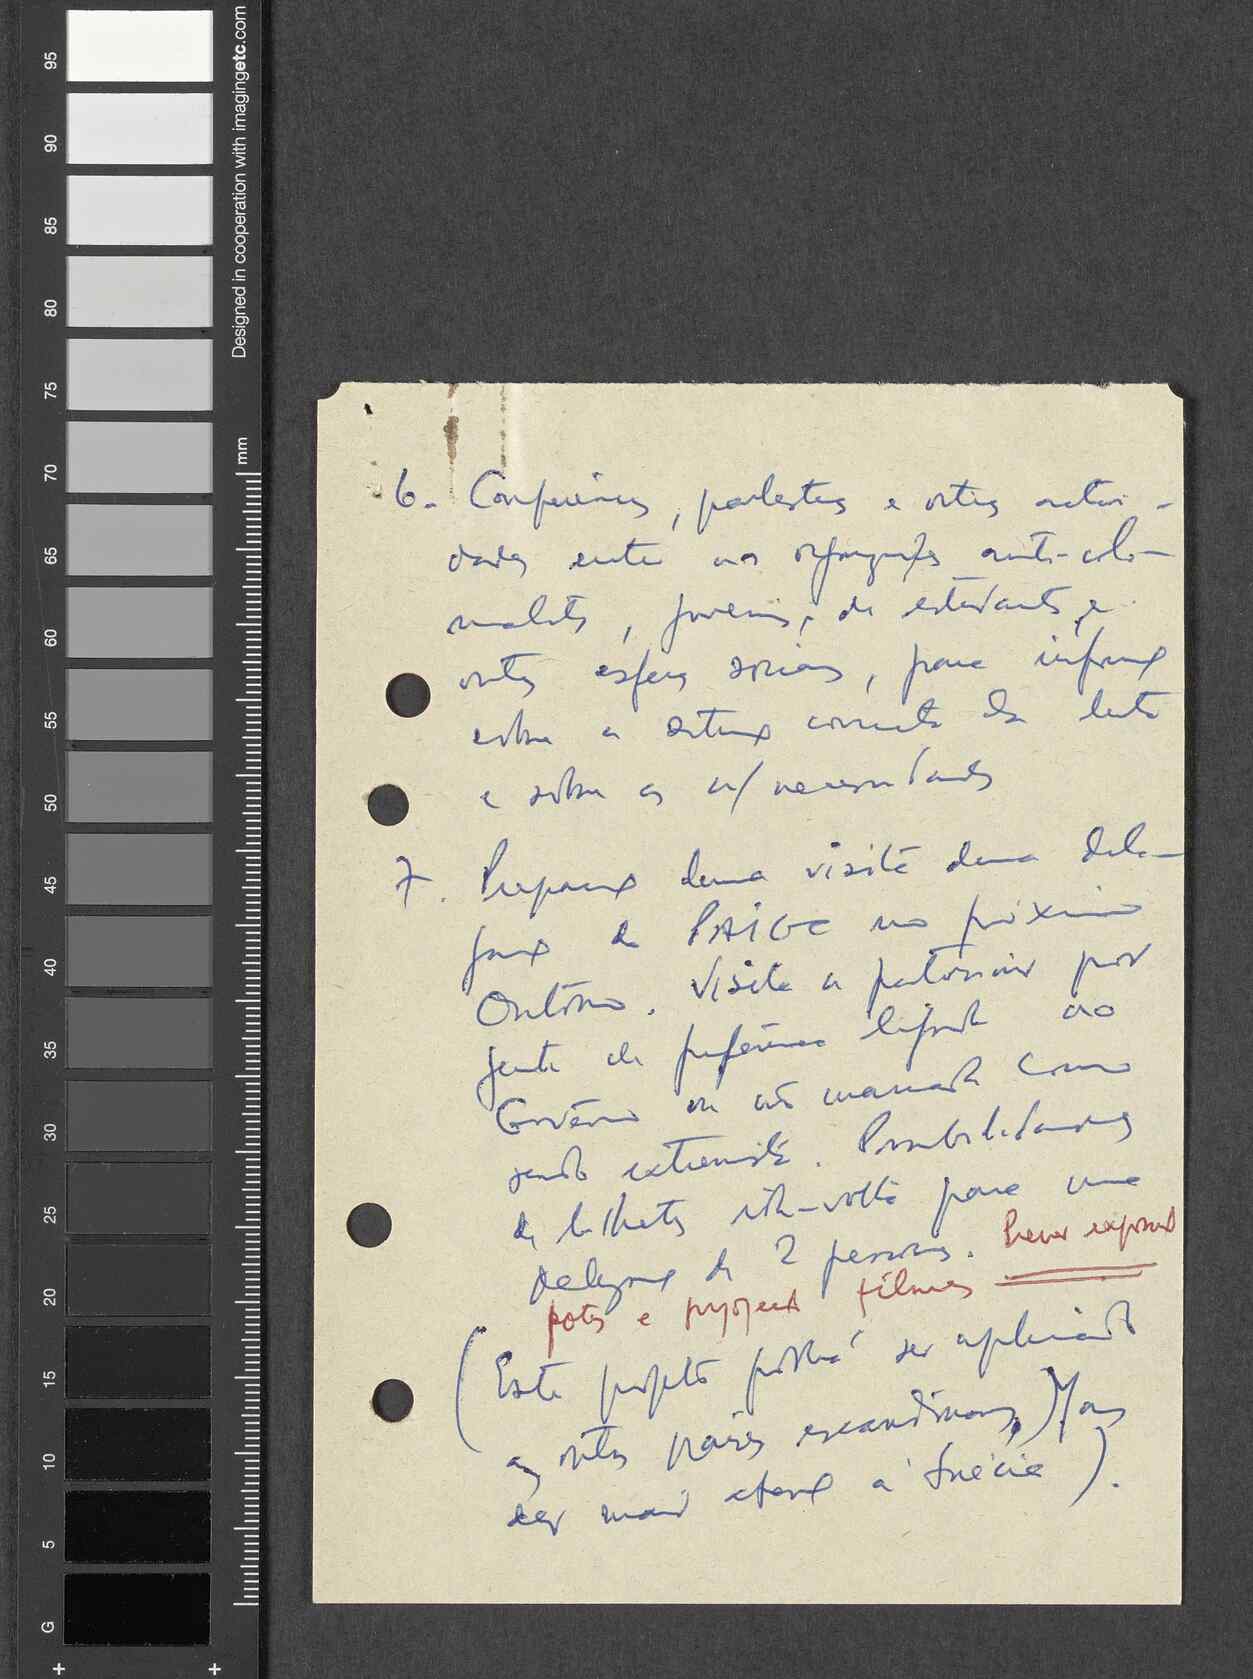 95
90
85
80
75
70
65
60
55
50
45
40
35
30
25
20
15
10
5
G
Designed in cooperation with imagingetc.com
mm
6. Conferências, palestras e outras activi-
dades entre as organizações anti-colo-
nialistas, juvenis, de estudantes e
outras esferas sociais, para informação
sobre a situação concreta da luta
e sobre as n/necessidades
7. Preparação duma visita duma dele-
gação do PAIGC no próximo
Outôno. Visita a patrocinar por
gente de preferência ligada ao
Govêrno ou não marcada como
sendo extremista. Possibilidades
de bilhetes ida-volta para uma
delegação de 2 pessoas. Prever exposição
fotos e projecção filmes
(Este projecto poderá ser aplicado
a outros países escandinavos,) Mas
dar mais atenção à Suécia).